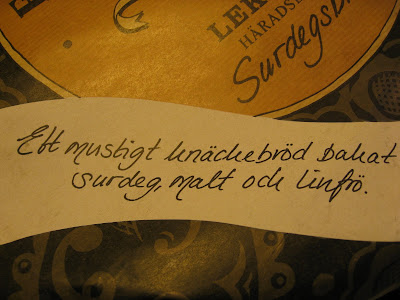 LEK
HÄRADS
Surdegsb
Ett mustigt knäckebröd bakat
surdeg, malt och linfrö.